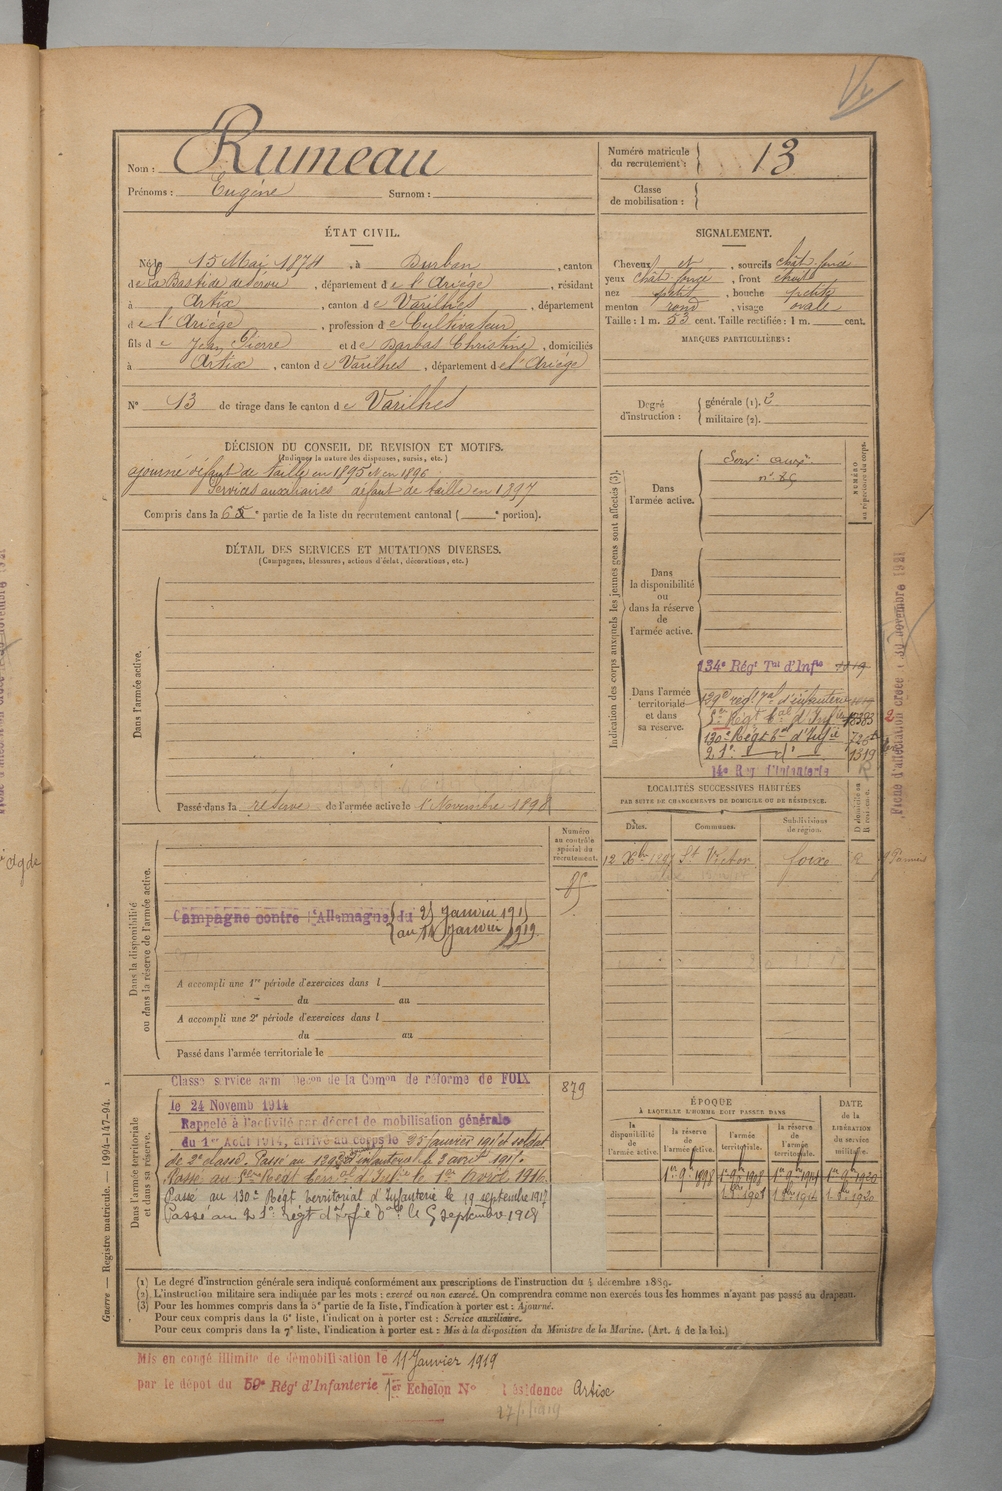 Nom : Rumeau
Prénoms : Eugène Surnom :
Numéro matricule
du recrutement : 13
Classe
de mobilisation :
ÉTAT CIVIL.
Né le 15 Mai 1874, à Durban, canton
de La Bastide de Sérou, département de l'Ariège, résidant
à Artix, canton de Varilhes, département
de l'Ariège, profession de Cultivateur
fils de Jean Pierre et de Barbas Christine, domiciliés
à Artix, canton de Varilhes, département de l'Ariège
N° 13 de tirage dans le canton de Varilhes
SIGNALEMENT.
Cheveux et, sourcils chât. foncé
yeux chât. foncé, front étroit
nez petit, bouche petite
menton rond, visage ovale
Taille : 1 m. 53 cent. Taille rectifiée : 1 m. cent.
MARQUES PARTICULIÈRES :
Degré
d'instruction :
générale (1). 2
militaire (2).
DÉCISION DU CONSEIL DE REVISION ET MOTIFS.
(Indiquer la nature des dispenses, sursis, etc.)
ajourné défaut de taille en 1895 et en 1896
Services auxiliaires défaut de taille en 1897
Compris dans la 6e partie de la liste du recrutement cantonal ( e portion).
DÉTAIL DES SERVICES ET MUTATIONS DIVERSES.
(Campagnes, blessures, actions d'éclat, décorations, etc.)
Dans l'armée active.
Passé dans la réserve de l'armée active le 1er Novembre 1898
Indication des corps auxquels les jeunes gens sont affectés (3).
NUMÉRO
au répertoire du corps.
Dans
l'armée active.
Serv. aux.
n° 85
Dans
la disponibilité
ou
dans la réserve
de
l'armée active.
Dans l'armée
territoriale
et dans
sa réserve.
134e Régt Tal d'Infie 1819
139e régt tal d'infanterie
5e Régt tal d'Infie
130e Régt tal d'Infie
21e
14e Reg d'Infanterie
Fiche d'affectation créée le 30 novembre 1921
LOCALITÉS SUCCESSIVES HABITÉES
PAR SUITE DE CHANGEMENTS DE DOMICILE OU DE RÉSIDENCE.
Dates. Communes. Subdivisions
de région.
12 Xbre 1897 St Victor Foix R
Dans la disponibilité
ou dans la réserve de l'armée active.
Numéro
au contrôle
spécial du
recrutement.
85
Campagne contre l'Allemagne du 25 Janvier 1915
au 14 Janvier 1919
A accompli une 1re période d'exercices dans l
du au
A accompli une 2e période d'exercices dans l
du au
Passé dans l'armée territoriale le
Dans l'armée territoriale
et dans sa réserve.
Classé service armé Décon de la Comon de réforme de FOIX
le 24 Novemb 1914
879
Rappelé à l'activité par décret de mobilisation générale
du 1er Août 1914, arrivé au corps le 25 janvier 1915 et soldat
de 2e classe. Passé au 139e d'infanterie le 3 avril 1915.
Passé au 5e Régt Territal d'Infie le 1er Avril 1916
Passé au 130e Régt territorial d'Infanterie le 19 septembre 1917
Passé au 21e régt d'Infie Cale le 5 septembre 1918
ÉPOQUE
À LAQUELLE L'HOMME DOIT PASSER DANS
DATE
de la
LIBÉRATION
du service
militaire.
la
disponibilité
de l'armée active.
la
réserve de
l'armée active.
l'armée
territoriale.
la réserve
de
l'armée
territoriale.
1er 9bre 1898 1er 9bre 1908 1er 9bre 1914 1er 9bre 1920
1er 8bre 1908 1er 8bre 1914 1er 8bre 1920
(1) Le degré d'instruction générale sera indiqué conformément aux prescriptions de l'instruction du 4 décembre 1889.
(2) L'instruction militaire sera indiquée par les mots : exercé ou non exercé. On comprendra comme non exercés tous les hommes n'ayant pas passé au drapeau.
(3) Pour les hommes compris dans la 5e partie de la liste, l'indication à porter est : Ajourné.
Pour ceux compris dans la 6e liste, l'indication à porter est : Service auxiliaire.
Pour ceux compris dans la 7e liste, l'indication à porter est : Mis à la disposition du Ministre de la Marine. (Art. 4 de la loi.)
Guerre — Registre matricule. — 1994-147-94.
Mis en congé illimité de démobilisation le 11 Janvier 1919
par le dépôt du 59e Régt d'Infanterie 1er Echelon N° Résidence Artix